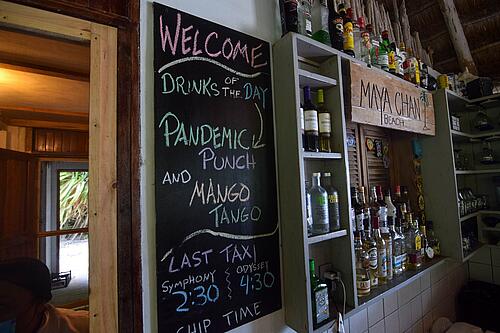 WELCOME
DRINKS OF THE DAY
PANDEMIC
PUNCH
AND
MANGO
TANGO
LAST TAXI
SYMPHONY ODYSSEY
2:30 4:30
SHIP TIME
MAYA CHAN
BEACH